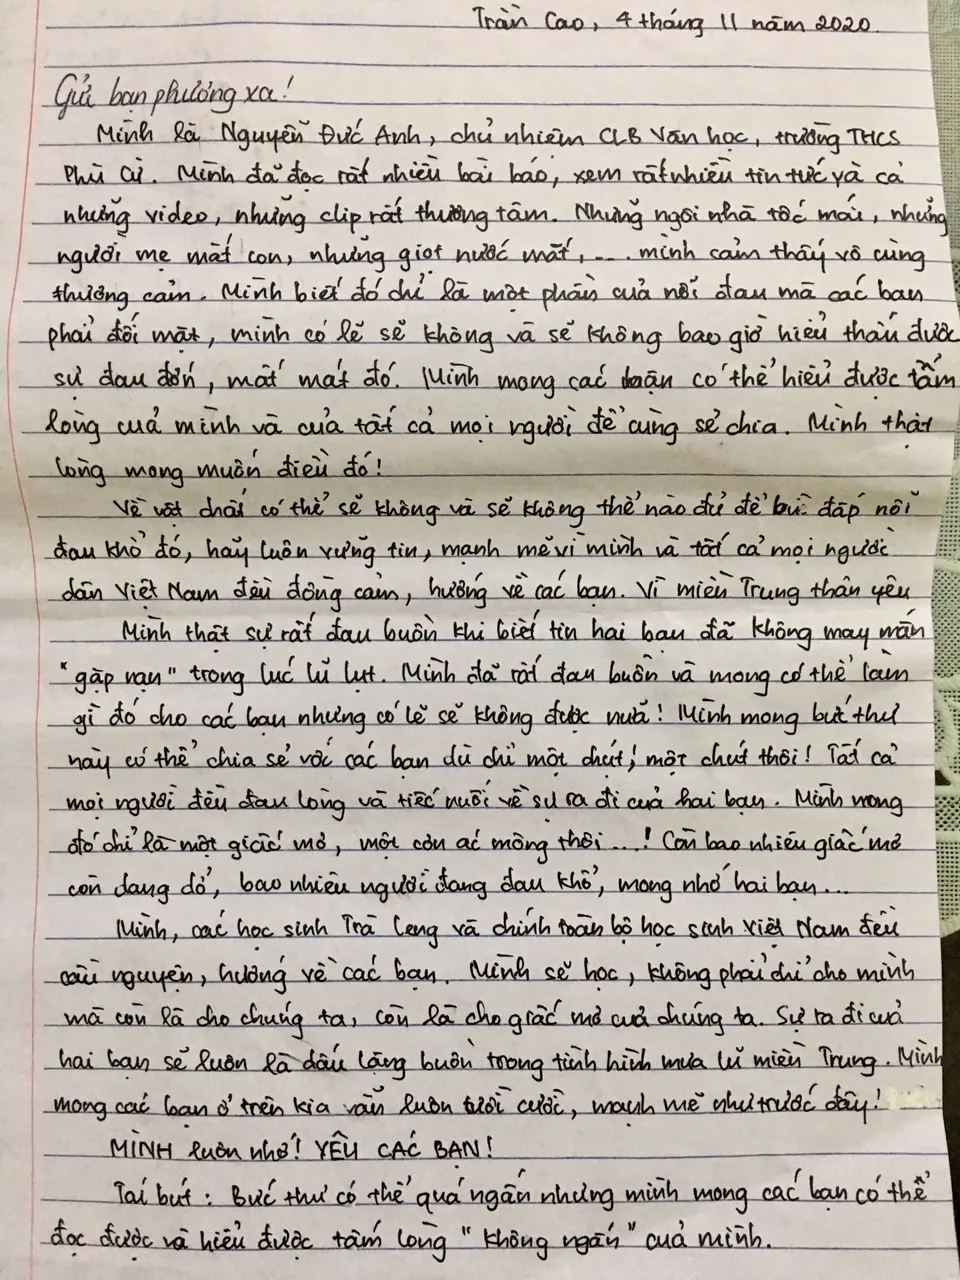 Trần Cao, 4 tháng 11 năm 2020.
Gửi bạn phương xa!
Mình là Nguyễn Đức Anh, chủ nhiệm CLB Văn học, trường THCS
Phù Cừ. Mình đã đọc rất nhiều bài báo, xem rất nhiều tin tức và cả
những video, những clip rất thương tâm. Những ngôi nhà tốc mái, những
người mẹ mất con, những giọt nước mắt,.... mình cảm thấy vô cùng
thương cảm. Mình biết đó chỉ là một phần của nỗi đau mà các bạn
phải đối mặt, mình có lẽ sẽ không và sẽ không bao giờ hiểu thấu được
sự đau đớn, mất mát đó. Mình mong các bạn có thể hiểu được tấm
lòng của mình và của tất cả mọi người để cùng sẻ chia. Mình thật
lòng mong muốn điều đó!
Về vật chất có thể sẽ không và sẽ không thể nào đủ để bù đắp nỗi
đau khổ đó, hãy luôn vững tin, mạnh mẽ vì mình và tất cả mọi người
dân Việt Nam đều đồng cảm, hướng về các bạn. Vì miền Trung thân yêu
Mình thật sự rất đau buồn khi biết tin hai bạn đã không may mắn
"gặp nạn" trong lúc lũ lụt. Mình đã rất đau buồn và mong có thể làm
gì đó cho các bạn nhưng có lẽ sẽ không được nữa! Mình mong bức thư
này có thể chia sẻ với các bạn dù chỉ một chút, một chút thôi! Tất cả
mọi người đều đau lòng và tiếc nuối về sự ra đi của hai bạn. Mình mong
đó chỉ là một giấc mơ, một cơn ác mộng thôi...! Còn bao nhiêu giấc mơ
còn dang dở, bao nhiêu người đang đau khổ, mong nhớ hai bạn...
Mình, các học sinh Trà Leng và chính toàn bộ học sinh Việt Nam đều
cầu nguyện, hướng về các bạn. Mình sẽ học, không phải chỉ cho mình
mà còn là cho chúng ta, còn là cho giấc mơ của chúng ta. Sự ra đi của
hai bạn sẽ luôn là dấu lặng buồn trong tình hình mưa lũ miền Trung. Mình
mong các bạn ở trên kia vẫn luôn tươi cười, mạnh mẽ như trước đây!
MÌNH luôn nhớ! YÊU CÁC BẠN!
Tái bút: Bức thư có thể quá ngắn nhưng mình mong các bạn có thể
đọc được và hiểu được tấm lòng "không ngắn" của mình.